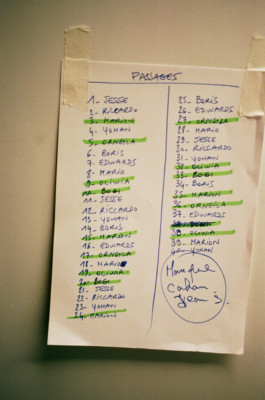 PASSAGES
1_ JESSE
2_ RICCARDO
3_ MARION
4_ YOHAN
5_ ORNELA
6_ BORIS
7_ EDWARDS
8_ MARIO
9_ OLIVIA
10_ BOGI
11_ JESSE
12_ RICCARDO
13_ YOHAN
14_ BORIS
15_ MARION
16_ EDWARDS
17_ ORNELA
18_ MARIO
19_ OLIVIA
20_ BOGI
21_ JESSE
22_ RICCARDO
23_ YOHAN
24_ MARION
25_ BORIS
26_ EDWARDS
27_ ORNELA
28_ MARIO
29_ JESSE
30_ RICCARDO
31_ YOHAN
32_ OLIVIA
33_ BOGI
34_ BORIS
35_ MARION
36_ ORNELA
37_ EDWARDS
38_ BOGI
38_ OLIVIA
39_ MARION
40_ YOHAN